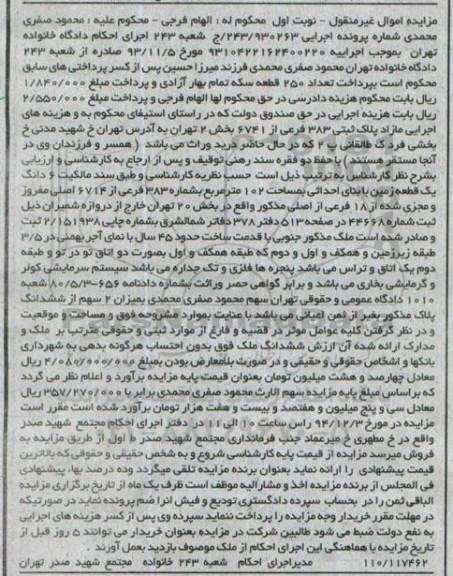 مزایده اموال غیرمنقول - نوبت اول محکوم له : الهام فرجی - محکوم علیه : محمود صفری
محمدی شماره پرونده اجرایی ۲۴۳/۹۳۰۲۶۳/ج شعبه ۲۴۳ اجرای احکام دادگاه خانواده
تهران بموجب اجراییه ۹۳۱۰۴۲۲۱۶۲۴۰۰۲۲۰ مورخ ۹۳/۱۱/۵ صادره از شعبه ۲۴۳
دادگاه خانواده تهران محمود صفری محمدی فرزند میرزا حسین پس از کسر پرداختی های سابق
محکوم است بپرداخت تعداد ۲۵۰ قطعه سکه تمام بهار آزادی و پرداخت مبلغ ۱/۸۴۰/۰۰۰
ریال بابت محکوم هزینه دادرسی در حق محکوم لها الهام فرجی و پرداخت مبلغ ۲/۵۵۰/۰۰۰
ریال بابت هزینه اجرایی در حق صندوق دولت که در راستای استیفای محکوم به و هزینه های
اجرایی مازاد پلاک ثبتی ۳۸۳ فرعی از ۶۷۴۱ بخش ۲ تهران به آدرس تهران خ شهید مدنی خ
بخشی فرد ک طالقانی پ ۲ که در حال حاضر در ید وراث می باشد ( همسر و فرزندان وی در
آنجا مستقر هستند ) با حفظ دو فقره سند رهنی توقیف و پس از ارجاع به کارشناسی و ارزیابی
بشرح نظر کارشناس به ترتیب ذیل است حسب نظریه کارشناسی و طبق سند مالکیت ۶ دانگ
یک قطعه زمین با بنای احداثی بمساحت ۱۰۲ مترمربع بشماره ۳۸۳ فرعی از ۶۷۱۴ اصلی مفروز
و مجزی شده از ۱۸ فرعی از اصلی مذکور واقع در بخش ۲۰ تهران خارج از دروازه شمیران ذیل
ثبت شماره ۴۴۶۶۸ در صفحه ۵۱۳ دفتر ۳۷۸ دفاتر شمالشرق بشماره چاپی ۲/۱۵۱۹۳۸ ثبت
و صادر شده است ملک مذکور جنوبی با قدمت ساخت حدود ۴۵ سال با نمای آجر بهمنی در ۳/۵
طبقه زیرزمین و همکف و اول و دوم که طبقه همکف و اول بصورت دو اتاق تو در تو و طبقه
دوم یک اتاق و تراس می باشد پنجره ها فلزی و تک جداره می باشد سیستم سرمایشی کولر
و گرمایشی بخاری می باشد و برابر گواهی حصر وراثت بشماره دادنامه ۶۵۶-۸۰/۵/۳ شعبه
۱۰۱۰ دادگاه عمومی و حقوقی تهران سهم محمود صفری محمدی بمیزان ۲ سهم از ششدانگ
پلاک مذکور بغیر از ثمن اعیانی می باشد با عنایت بموارد مشروحه فوق و مساحت و موقعیت
و در نظر گرفتن کلیه عوامل موثر در قضیه و فارغ از موارد ثبتی و حقوقی مترتب بر ملک و
مدارک ارائه شده آن ارزش ششدانگ ملک فوق بدون احتساب هرگونه بدهی به شهرداری
بانکها و اشخاص حقوقی و حقیقی و در صورت بلامعارض بودن بمبلغ ۴/۰۸۰/۰۰۰/۰۰۰ ریال
معادل چهارصد و هشت میلیون تومان بعنوان قیمت پایه مزایده برآورد و اعلام نظر می گردد
که براساس مبلغ پایه مزایده سهم الارث محمود صفری محمدی برابر با ۳۵۷/۲۷۰/۰۰۰ ریال
معادل سی و پنج میلیون و هفتصد و بیست و هفت هزار تومان برآورد شده است مقرر است
مزایده در مورخ ۹۴/۱۲/۳ راس ساعت ۱۰ الی ۱۱ در دفتر اجرای احکام مجتمع شهید صدر
واقع در خ مطهری خ میرعماد جنب فرمانداری مجتمع شهید صدر ط اول از طریق مزایده به
فروش میرسد مزایده از قیمت پایه کارشناسی شروع و به شخص حقیقی و حقوقی که بالاترین
قیمت پیشنهادی را ارائه نماید بعنوان برنده مزایده تلقی میگردد وده درصد بهاء پیشنهادی
فی المجلس از برنده مزایده اخذ و مشارالیه موظف است ظرف یک ماه از تاریخ برگزاری مزایده
الباقی ثمن را در بحساب سپرده دادگستری تودیع و فیش انرا ضم پرونده نماید در صورتیکه
در مهلت مقرر خریدار وجه مزایده را پرداخت ننماید سپرده وی پس از کسر هزینه های اجرایی
به نفع دولت ضبط می شود طالبین شرکت در مزایده بعنوان خریدار می توانند ۵ روز قبل از
تاریخ مزایده با هماهنگی این اجرای احکام از ملک موصوف بازدید بعمل آورند .
۱۱۰/۱۱۷۴۶۲ مدیراجرای احکام شعبه ۲۴۳ خانواده مجتمع شهید صدر تهران